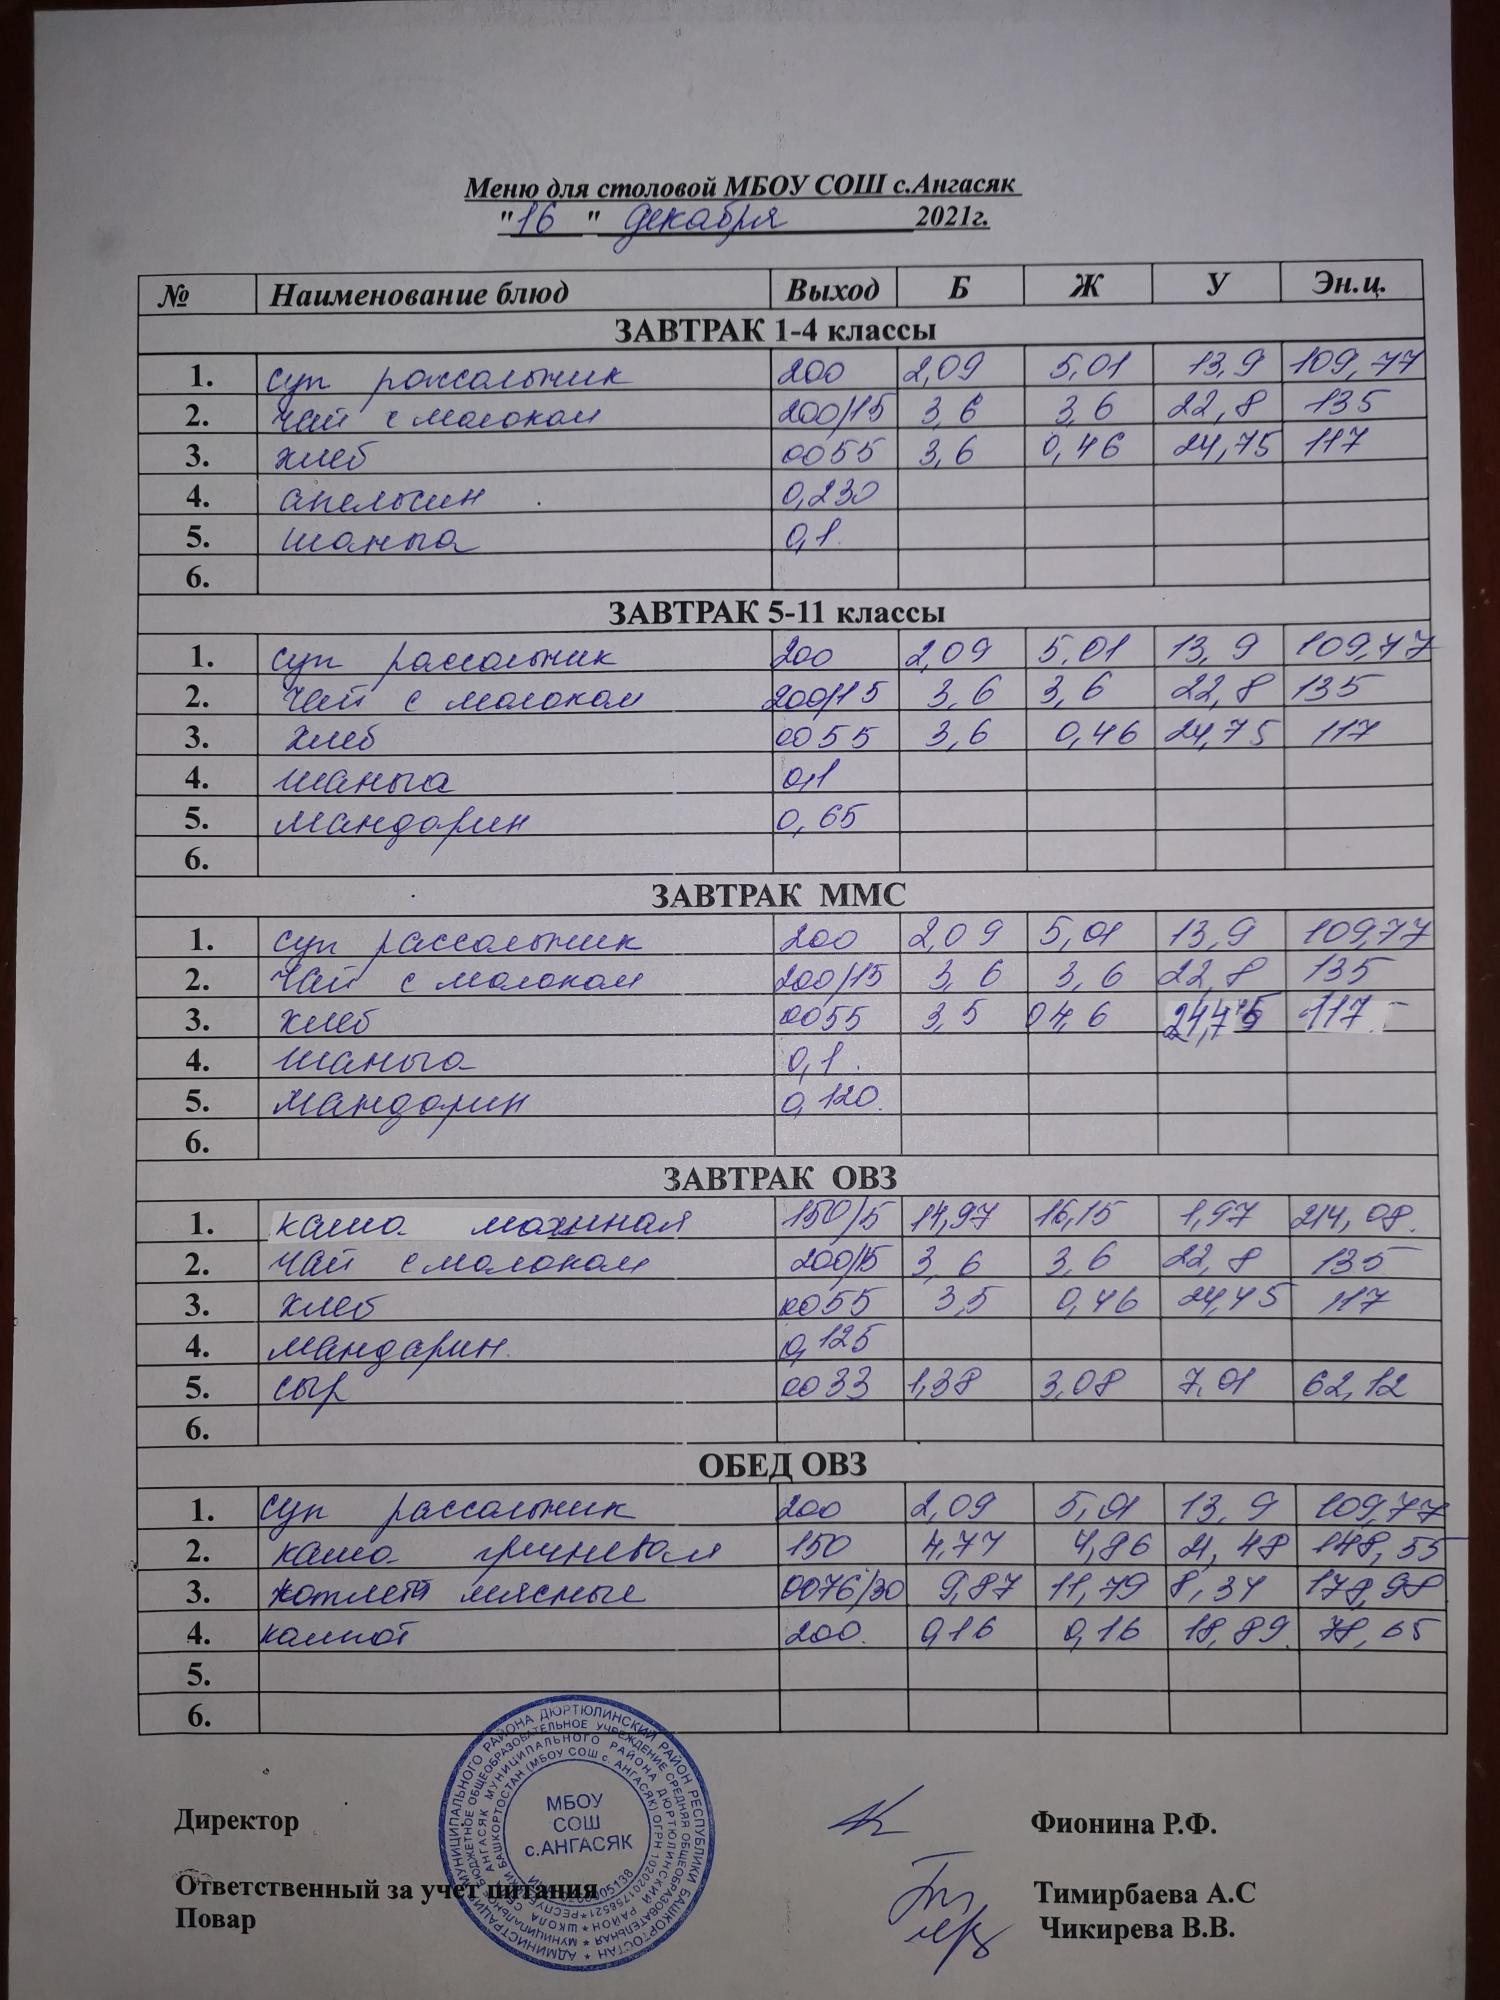 Меню для столовой МБОУ СОШ с.Ангасяк
"16" декабря 2021г.
№ Наименование блюд Выход Б Ж У Эн.ц.
ЗАВТРАК 1-4 классы
1. суп рассольник 200 2,09 5,01 13,9 109,77
2. чай с молоком 200/15 3,6 3,6 22,8 135
3. хлеб 0055 3,6 0,46 24,75 117
4. апельсин 0,230
5. шаньга 0,1
6.
ЗАВТРАК 5-11 классы
1. суп рассольник 200 2,09 5,01 13,9 109,77
2. чай с молоком 200/15 3,6 3,6 22,8 135
3. хлеб 0055 3,6 0,46 24,75 117
4. шаньга 0,1
5. мандарин 0,65
6.
ЗАВТРАК ММС
1. суп рассольник 200 2,09 5,01 13,9 109,77
2. чай с молоком 200/15 3,6 3,6 22,8 135
3. хлеб 0055 3,5 04,6 24,75 117
4. шаньга 0,1
5. мандарин 0,120
6.
ЗАВТРАК ОВЗ
1. каша 150/5 14,97 16,15 1,97 214,08
2. чай с молоком 200/15 3,6 3,6 22,8 135
3. хлеб 0055 3,5 0,46 24,45 117
4. мандарин 0,125
5. сыр 0033 1,38 3,08 7,01 62,12
6.
ОБЕД ОВЗ
1. суп рассольник 200 2,09 5,01 13,9 109,77
2. каша гречневая 150 4,77 4,86 21,48 148,55
3. котлета мясные 0076/30 9,87 11,79 8,34 178,98
4. компот 200 0,16 0,16 18,89 78,65
5.
6.
МБОУ
СОШ
с.АНГАСЯК
Директор Фионина Р.Ф.
Ответственный за учет питания Тимирбаева А.С
Повар Чикирева В.В.